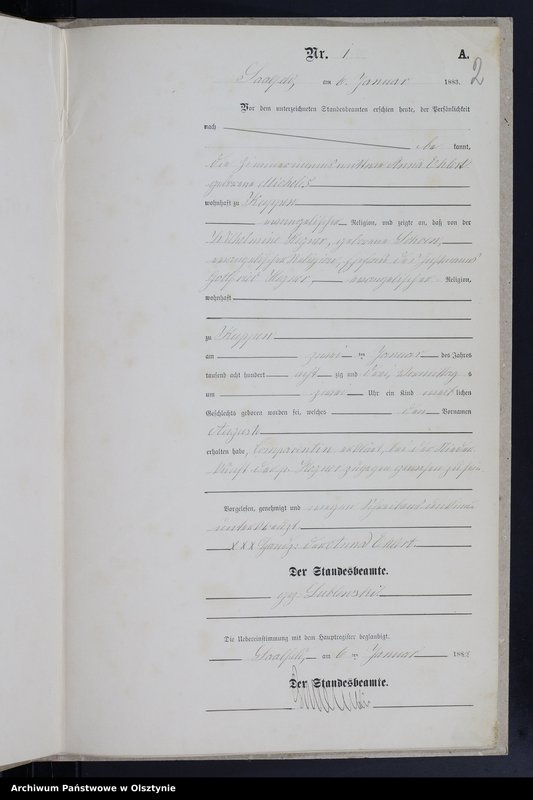 Nr. 1 A.
2
Saalfeld, am 6. Januar 1883.
Vor dem unterzeichneten Standesbeamten erschien heute, der Persönlichkeit
nach
be kannt,
die Zimmermannswittwe Anna Ehlert
geborene Michels
wohnhaft zu Kuppen
evangelischer Religion, und zeigte an, daß von der
Wilhelmine geborene
evangelischer Religion, Ehefrau des
Gottfried evangelischer Religion,
wohnhaft
zu Kuppen
am zwei ten Januar des Jahres
tausend acht hundert acht zig und drei, Vormittag s
um Uhr ein Kind männ lichen
Geschlechts geboren worden sei, welches den Vornamen
August
erhalten habe, Comparentin erklärt, bei der Nieder
kunft der zugegen gewesen zu sein.
Vorgelesen, genehmigt und wegen
unterkreuzt
xxx Handz. der Anna Ehlert.
Der Standesbeamte.
gez.
Die Uebereinstimmung mit dem Hauptregister beglaubigt.
Saalfeld, am 6 ten Januar 1883.
Der Standesbeamte.
Archiwum Państwowe w Olsztynie